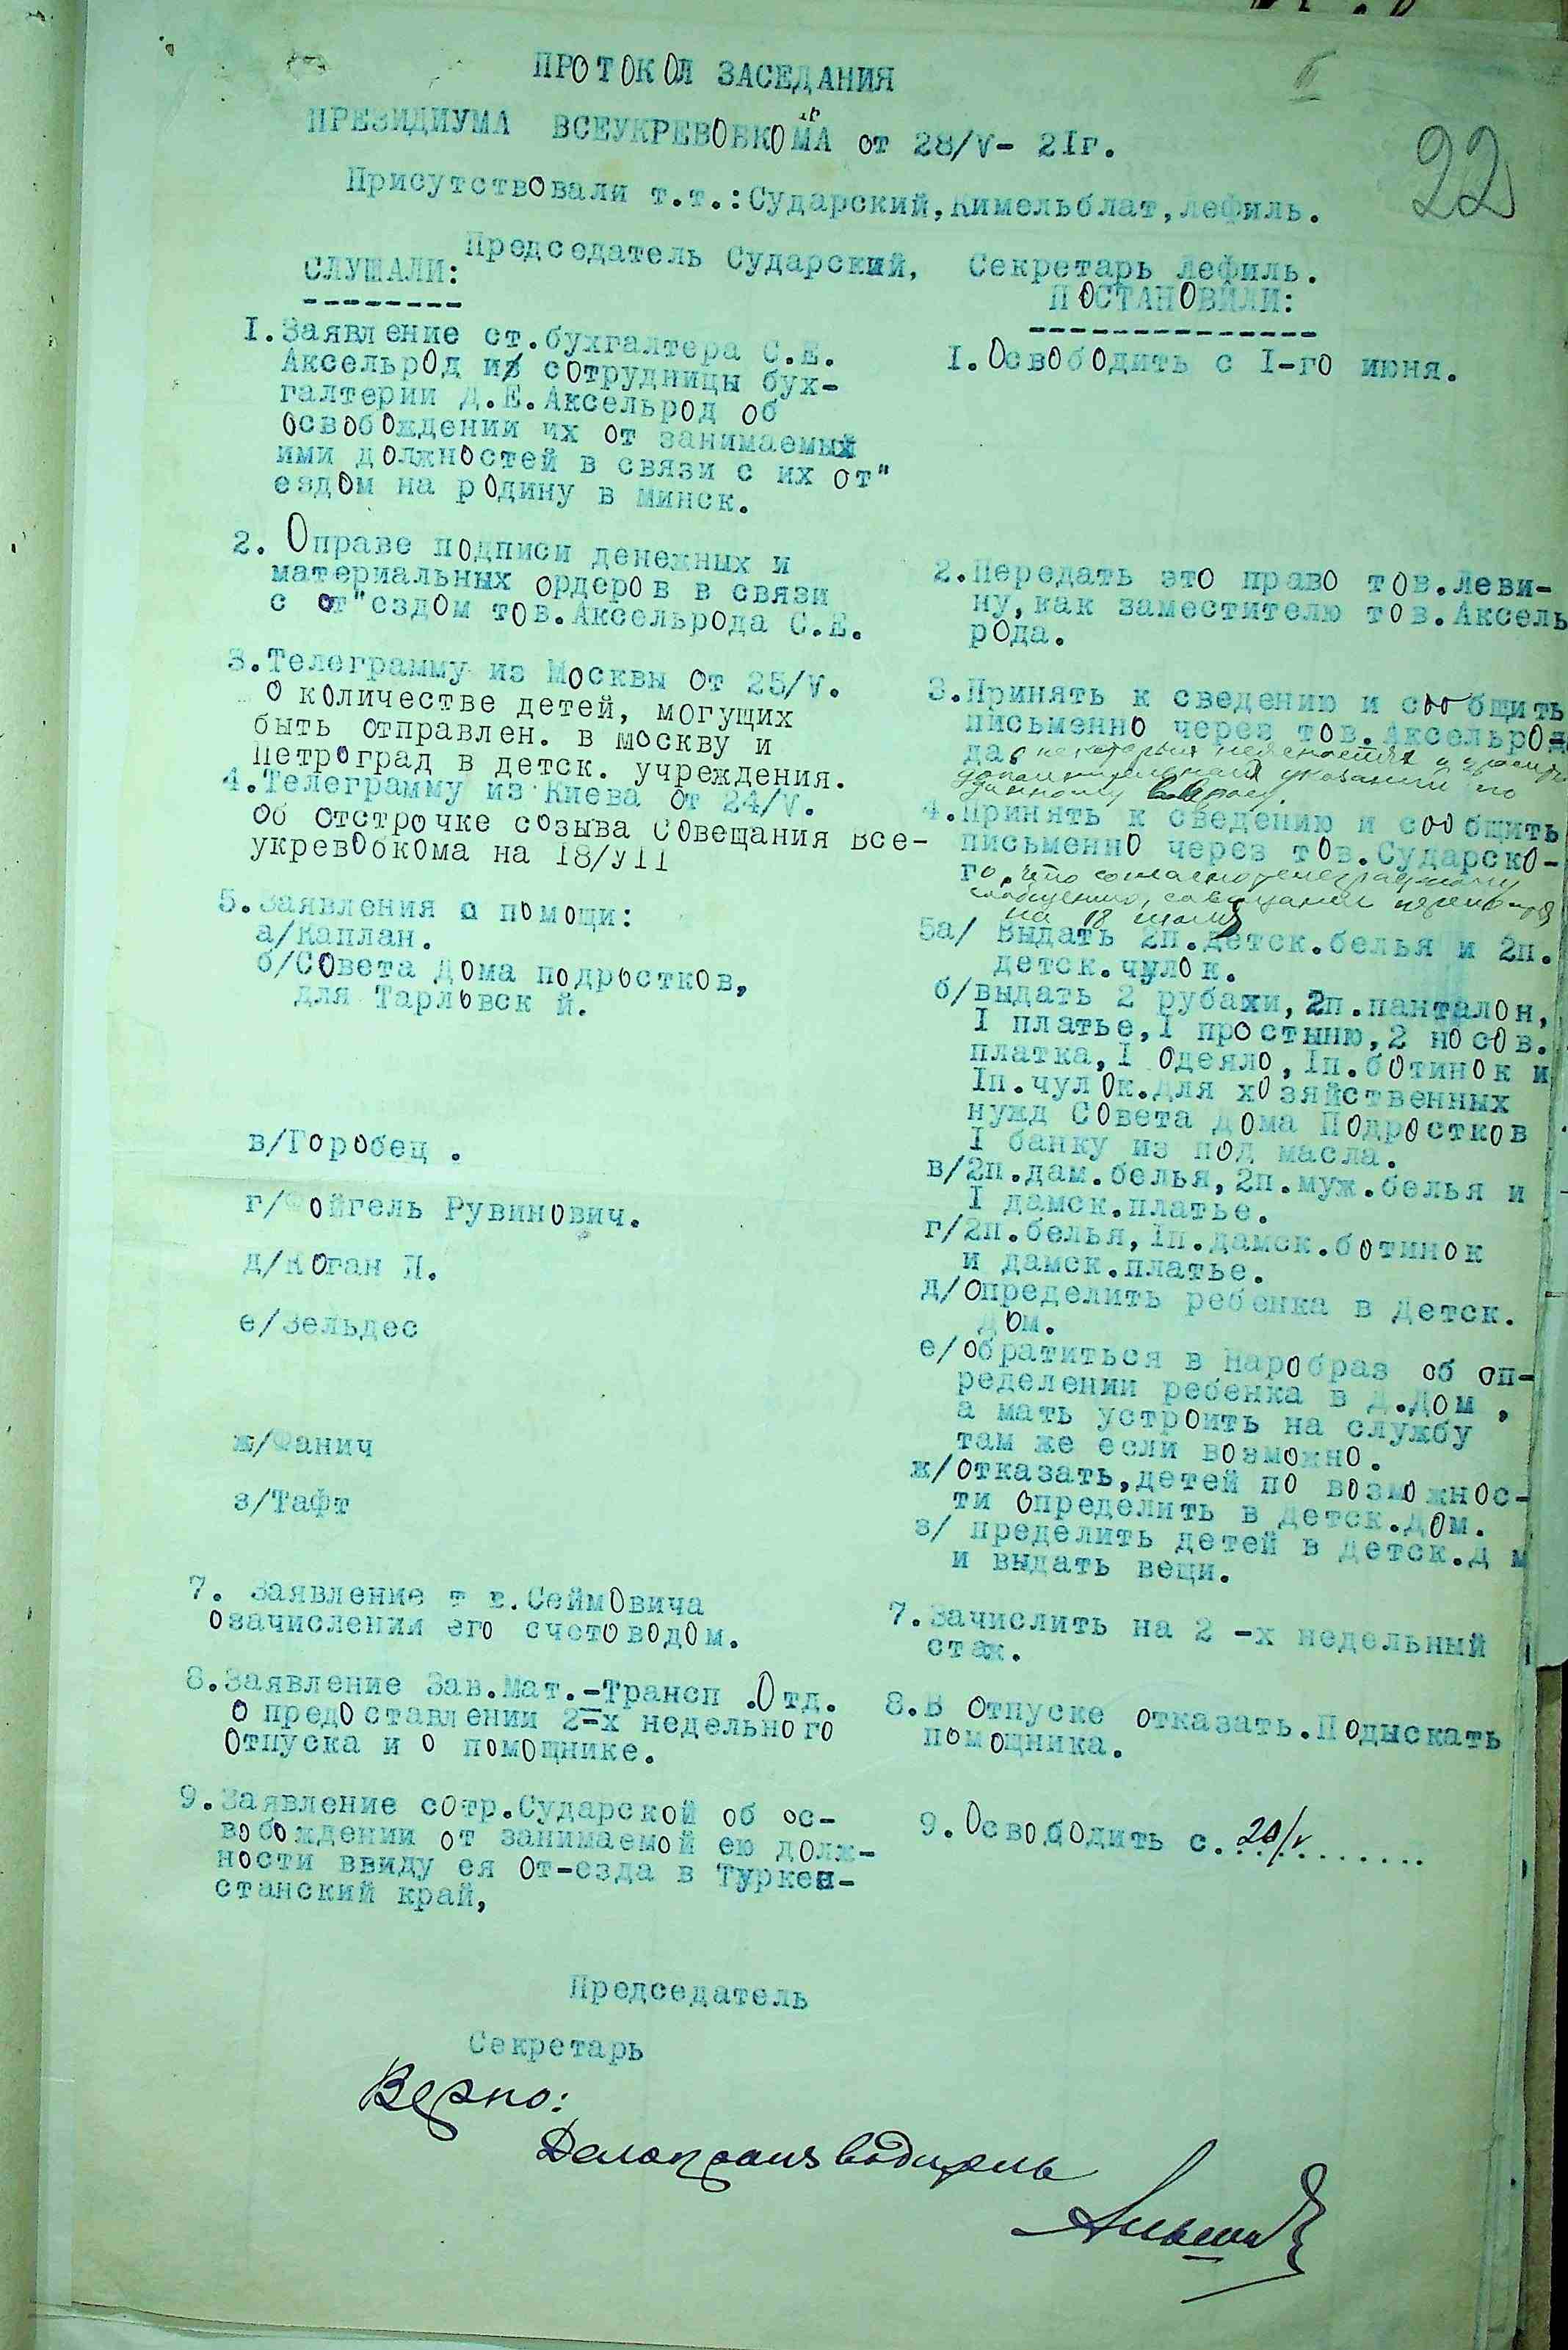 22
ПРОТОКОЛ ЗАСЕДАНИЯ
ПРЕЗИДИУМА ВСЕУКРЕВОБКОМА от 28/V- 2Iг.
Присутствовали т.т.:Сударский,Кимельблат,Лефиль.
Председатель Сударский, Секретарь Лефиль.
СЛУШАЛИ:
I.Заявление ст.бухгалтера С.Е.
Аксельрод и сотрудницы бух-
галтерии Д.Е.Аксельрод об
освобождении их от занимаемых
ими должностей в связи с их от"
ездом на родину в Минск.
2. Оправе подписи денежных и
материальных ордеров в связи
с от"ездом тов.Аксельрода С.Е.
3.Телеграмму из Москвы от 25/V.
о количестве детей, могущих
быть отправлен. в Москву и
Петроград в детск. учреждения.
4.Телеграмму из Киева от 24/V.
об отстрочке созыва Совещания Все-
укревобкома на 18/УII
5.Заявления о помощи:
а/Каплан.
б/Совета Дома подростков,
для Тарловск й.
в/Горобец .
г/Фойгель Рувинович.
д/Коган П.
е/Зельдес
ж/Фанич
з/Тафт
7. Заявление т в.Сеймовича
озачислении его счетоводом.
8.Заявление Зав.Мат.-Трансп .Отд.
о предоставлении 2-х недельного
отпуска и о помощнике.
9.Заявление сотр.Сударской об ос-
вобождении от занимаемой ею долж-
ности ввиду ея от-езда в Туркен-
станский край,
ПОСТАНОВИЛИ:
I.Освободить с I-го июня.
2.Передать это право тов.Леви-
ну,как заместителю тов.Аксель
рода.
3.Принять к сведению и сообщить
письменно через тов.Аксельро-
да о некоторых неясностях и
дополнительных указаний по
данному вопросу.
4.Принять к сведению и сообщить
письменно через тов.Сударско-
го, что согласно телеграфному
сообщению, совещание
на 18 июля
5а/ Выдать 2п.детск.белья и 2п.
детск.чулок.
б/выдать 2 рубахи,2п.панталон,
I платье,I простыню,2 носов.
платка,I одеяло,Iп.ботинок и
Iп.чулок.Для хозяйственных
нужд Совета Дома Подростков
I банку из под масла.
в/2п.дам.белья,2п.муж.белья и
I дамск.платье.
г/2п.белья,Iп.дамск.ботинок
и дамск.платье.
д/Определить ребенка в Детск.
Дом.
е/обратиться в Наробраз об оп-
ределении ребенка в Д.Дом ,
а мать устроить на службу
там же если возможно.
ж/отказать,детей по возможнос-
ти определить в Детск.Дом.
з/ пределить детей в Детск.Д м
и выдать вещи.
7.Зачислить на 2 -х недельный
стаж.
8.В отпуске отказать.Подыскать
помощника.
9.Освободить с. 20/V ........
Председатель
Секретарь
Верно:
Делопроизводитель